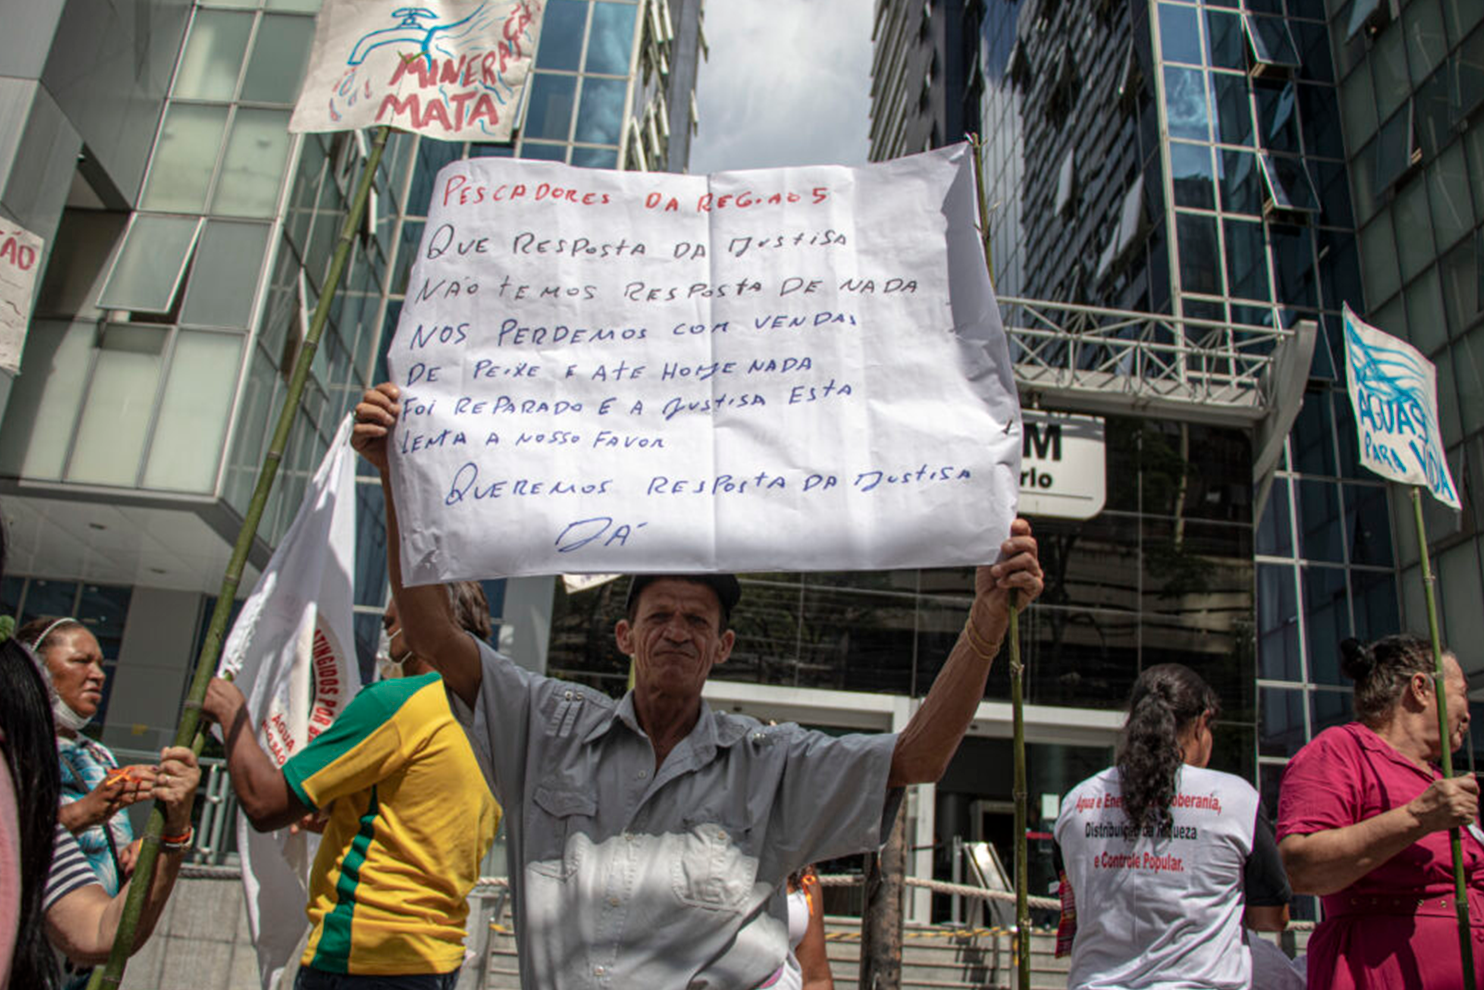 MINERAÇÃ
MATA
ÇÃO
PESCADORES DA REGIAO 5
QUE RESPOSTA DA JUSTISA
NÃO TEMOS RESPOSTA DE NADA
NOS PERDEMOS COM VENDAS
DE PEIXE E ATE HOJE NADA
FOI REPARADO E A JUSTISA ESTA
LENTA A NOSSO FAVOR
QUEREMOS RESPOSTA DA JUSTISA
JÁ
M
rlo
AGUAS
PARA VIDA
ATINGIDOS POR
AGUA
Agua e Ene oberania,
Distribuição da Riqueza
e Controle Popular.